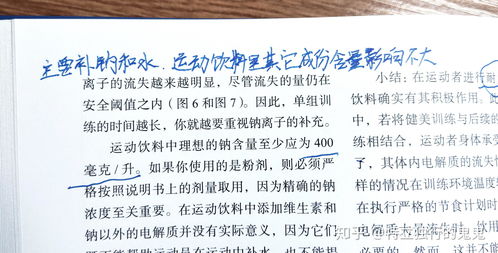 主要补钠和水,运动饮料里其它成份含量影响不大
离子的流失越来越明显,尽管流失的量仍在
安全阈值之内(图6和图7)。因此,单组训
练的时间越长,你就越要重视钠离子的补充。
运动饮料中理想的钠含量至少应为400
毫克/升。如果你使用的是粉剂,则必须严
格按照说明书上的剂量取用,因为精确的钠
浓度至关重要。在运动饮料中添加维生素和
钠以外的电解质并没有实际意义,因为它们
既不能帮助运动员在运动中补水,也不能提
小结:在运动者进行耐
饮料确实有其积极作用。
中,若将健美训练与后续的
练相结合,运动者身体承受
了,其体内电解质的流失
样的情况在训练环境温度
在执行严格的节食计划时
电解质大量流失,饮用
必要的。然而,这并不
知乎